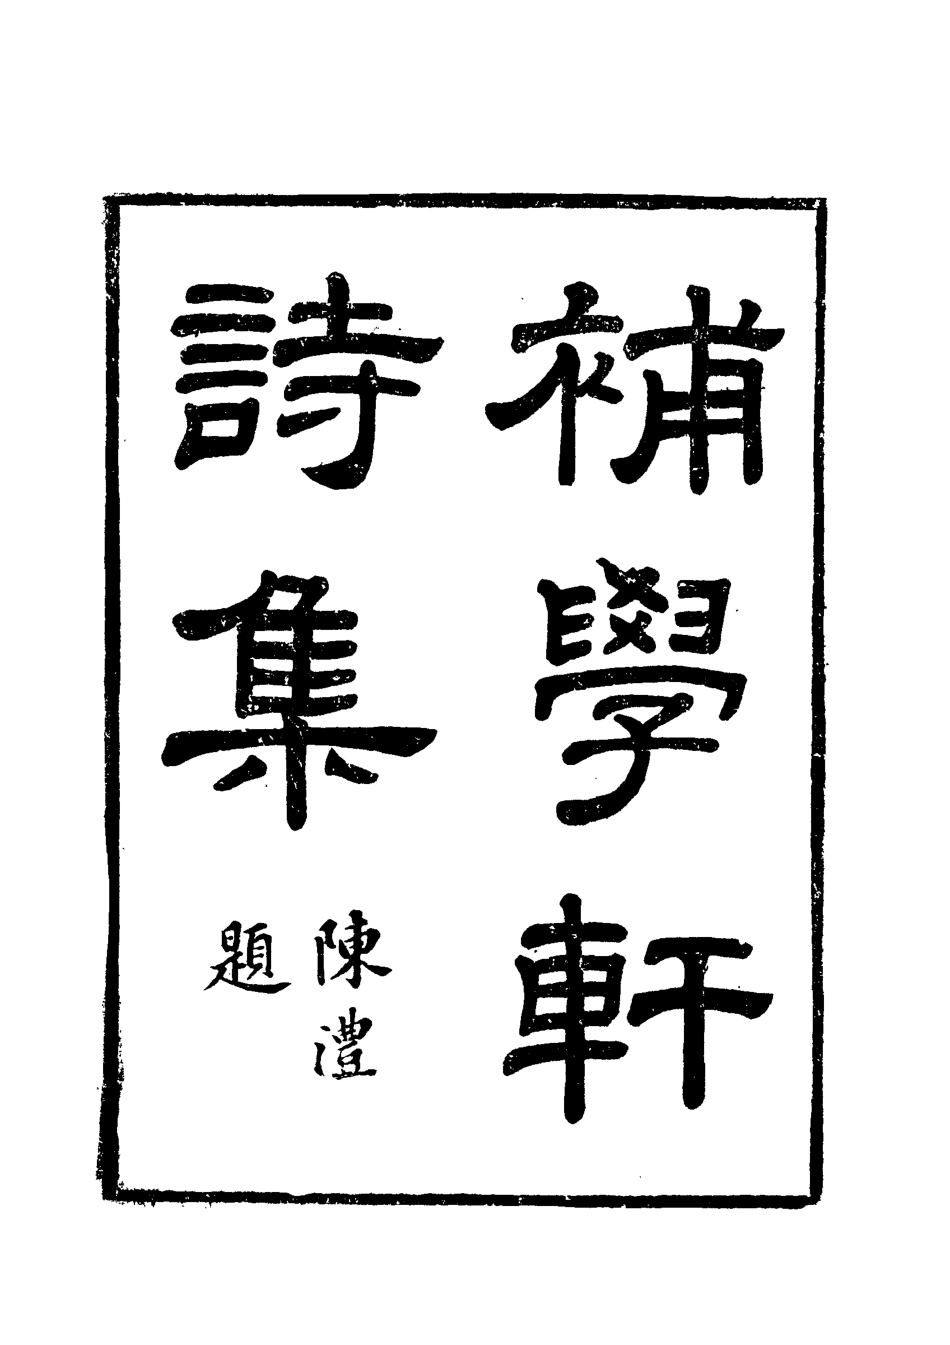 補學軒
詩集
陳澧
題